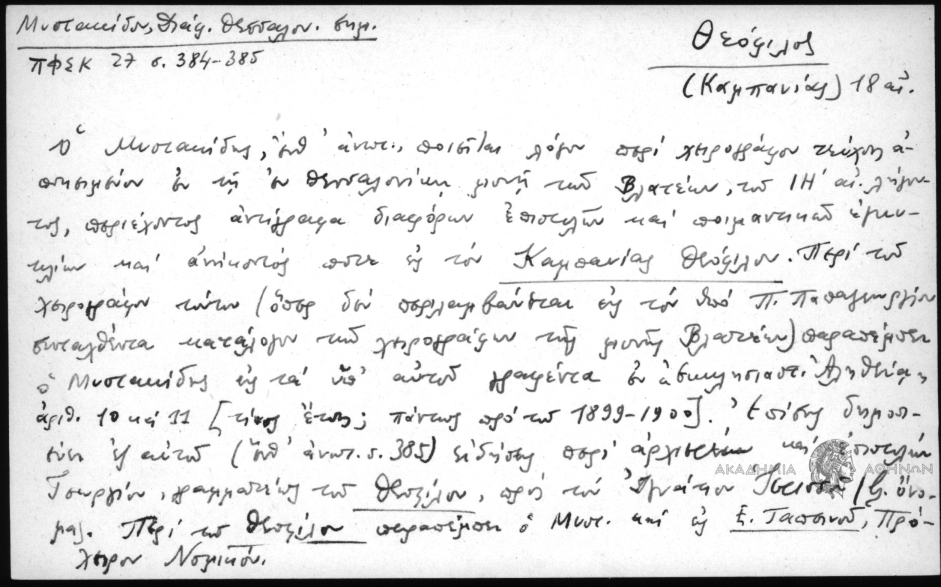 Μυστακίδου, Διάφ. Θεσσαλον. σημ.
ΠΦΣΚ 27 σ. 384-385
Θεόφιλος
(Καμπανίας) 18 αἰ.
Ὁ Μυστακίδης, ἔνθ' ἀνωτ., ποιεῖται λόγον περὶ χειρογράφου τεύχους ἀ-
ποκειμένου ἐν τῇ ἐν Θεσσαλονίκῃ μονῇ τῶν Βλατέων, τοῦ ΙΗ' αἰ. λήγον-
τος, περιέχοντος ἀντίγραφα διαφόρων ἐπιστολῶν καὶ ποιμαντικῶν ἐγκυ-
κλίων καὶ ἀνήκοντός ποτε εἰς τὸν Καμπανίας Θεόφιλον. Περὶ τοῦ
χειρογράφου τούτου (ὅπερ δὲν περιλαμβάνεται εἰς τὸν ὑπὸ Π. Παπαγεωργίου
συνταχθέντα κατάλογον τῶν χειρογράφων τῆς μονῆς Βλατέων) παραπέμπει
ὁ Μυστακίδης εἰς τὰ ὑπ' αὐτοῦ γραφέντα ἐν Ἐκκλησιαστ. Ἀληθείᾳ,
ἀριθ. 10 καὶ 11 [τίνος ἔτους; πάντως πρὸ τοῦ 1899-1900]. Ἐπίσης δημοσι-
εύει ἐξ αὐτοῦ (ἔνθ' ἀνωτ. σ. 385) εἰδήσεις περὶ καὶ ἐπιστολὴν
Γεωργίου, γραμματέως τοῦ Θεοφίλου, πρὸς τὸν Ἰγνάτιον (ἐ. ὄνο-
μα). Περὶ τοῦ Θεοφίλου παραπέμπει ὁ Μυστ. καὶ εἰς Ε. Ταπεινοῦ, Πρό-
χειρον Νομικόν.
ΑΚΑΔΗΜΙΑ ΑΘΗΝΩΝ